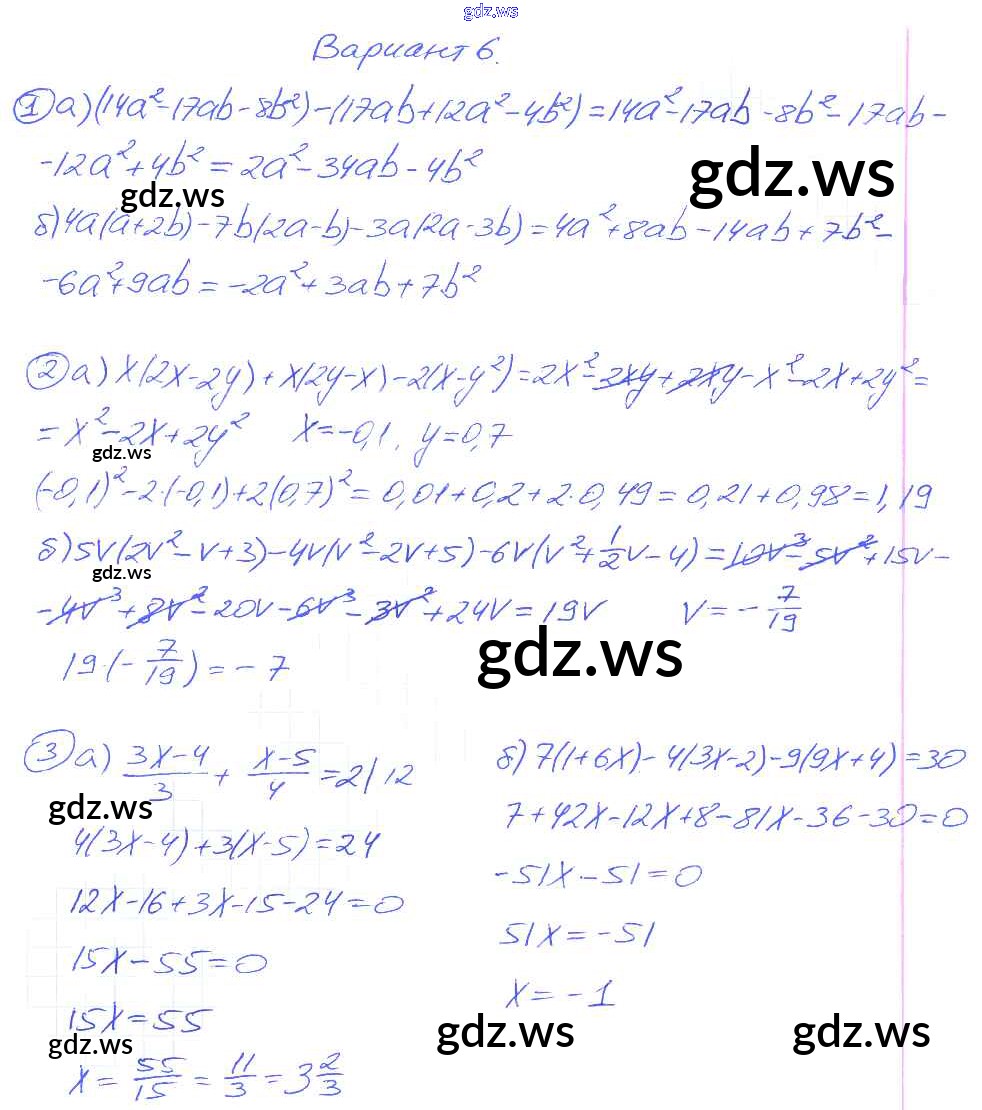 gdz.ws
Вариант 6.
1 а) (14a²-17ab-8b²)-(17ab+12a²-4b²)=14a²-17ab-8b²-17ab-
-12a²+4b²=2a²-34ab-4b²
gdz.ws
gdz.ws
б) 4a(a+2b)-7b(2a-b)-3a(2a-3b)=4a²+8ab-14ab+7b²-
-6a²+9ab=-2a²+3ab+7b²
2 а) x(2x-2y)+x(2y-x)-2(x-y²)=2x²-2xy+2xy-x²-2x+2y²=
=x²-2x+2y² x=-0,1, y=0,7
gdz.ws
(-0,1)²-2·(-0,1)+2(0,7)²=0,01+0,2+2·0,49=0,21+0,98=1,19
б) 5v(2v²-v+3)-4v(v²-2v+5)-6v(v²+1/2v-4)=10v³-5v²+15v-
gdz.ws
-4v³+8v²-20v-6v³-3v²+24v=19v v=-7/19
19·(-7/19)=-7
gdz.ws
3 а) (3x-4)/3+(x-5)/4=2 | 12
gdz.ws
4(3x-4)+3(x-5)=24
12x-16+3x-15-24=0
15x-55=0
15x=55
gdz.ws
x=55/15=11/3=3 2/3
б) 7(1+6x)-4(3x-2)-9(9x+4)=30
7+42x-12x+8-81x-36-30=0
-51x-51=0
51x=-51
x=-1
gdz.ws
gdz.ws